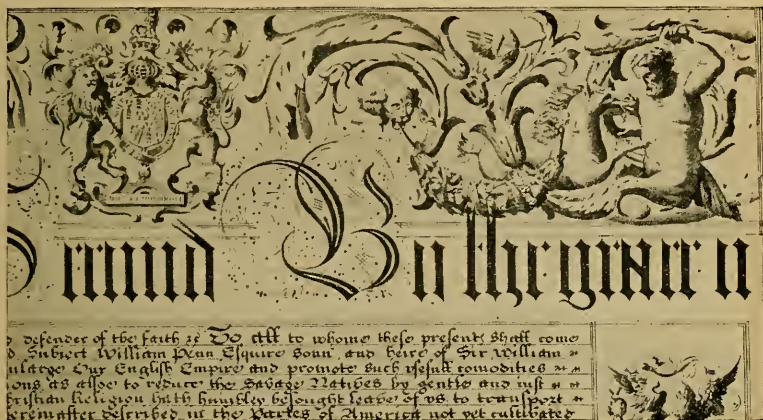 By the grace
defender of the faith &c To all to whome these presents shall come
Subiect William Penn Esquire Sonn and heire of Sir William
Our English Empire and promote such usefull comodities
as alsoe to reduce the Savage Natives by gentle and iust
Religion hath humbley besought leave of vs to transport
hereinafter described in the Partes of America not yet cultivated